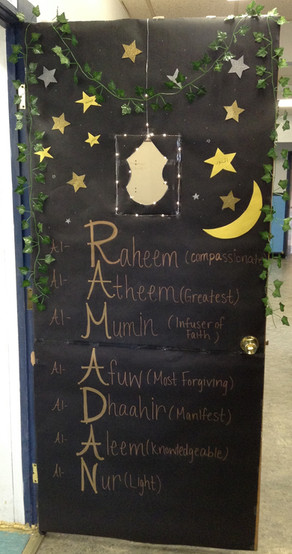 Al- Raheem (compassionate)
Al- Atheem (Greatest)
Al- Mumin (Infuser of faith)
Al- Afuw (Most Forgiving)
Al- Dhaahir (Manifest)
Al- Aleem (knowledgeable)
Al- Nur (Light)